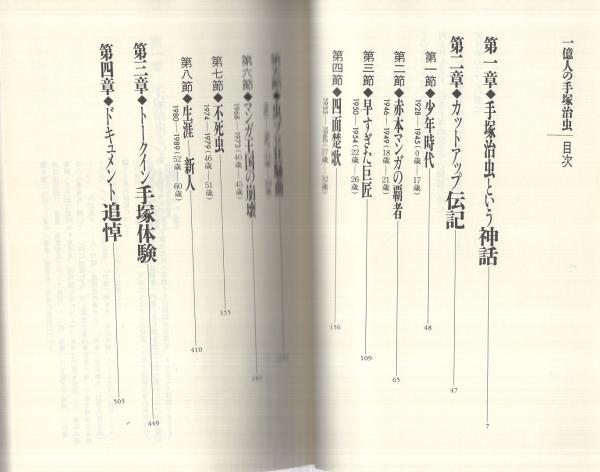 一億人の手塚治虫 目次
第一章◆手塚治虫という神話 7
第二章◆カットアップ伝記 47
第一節◆少年時代 48
1928―1945(0歳―17歳)
第二節◆赤本マンガの覇者 65
1946―1949(18歳―21歳)
第三節◆早すぎた巨匠 109
1950―1954(22歳―26歳)
第四節◆四面楚歌 156
第五節◆
第六節◆マンガ王国の崩壊
第七節◆不死虫 355
1974―1979(46歳―51歳)
第八節◆生涯一新人 410
1980―1989(52歳―60歳)
第三章◆トークイン手塚体験 449
第四章◆ドキュメント追悼 505